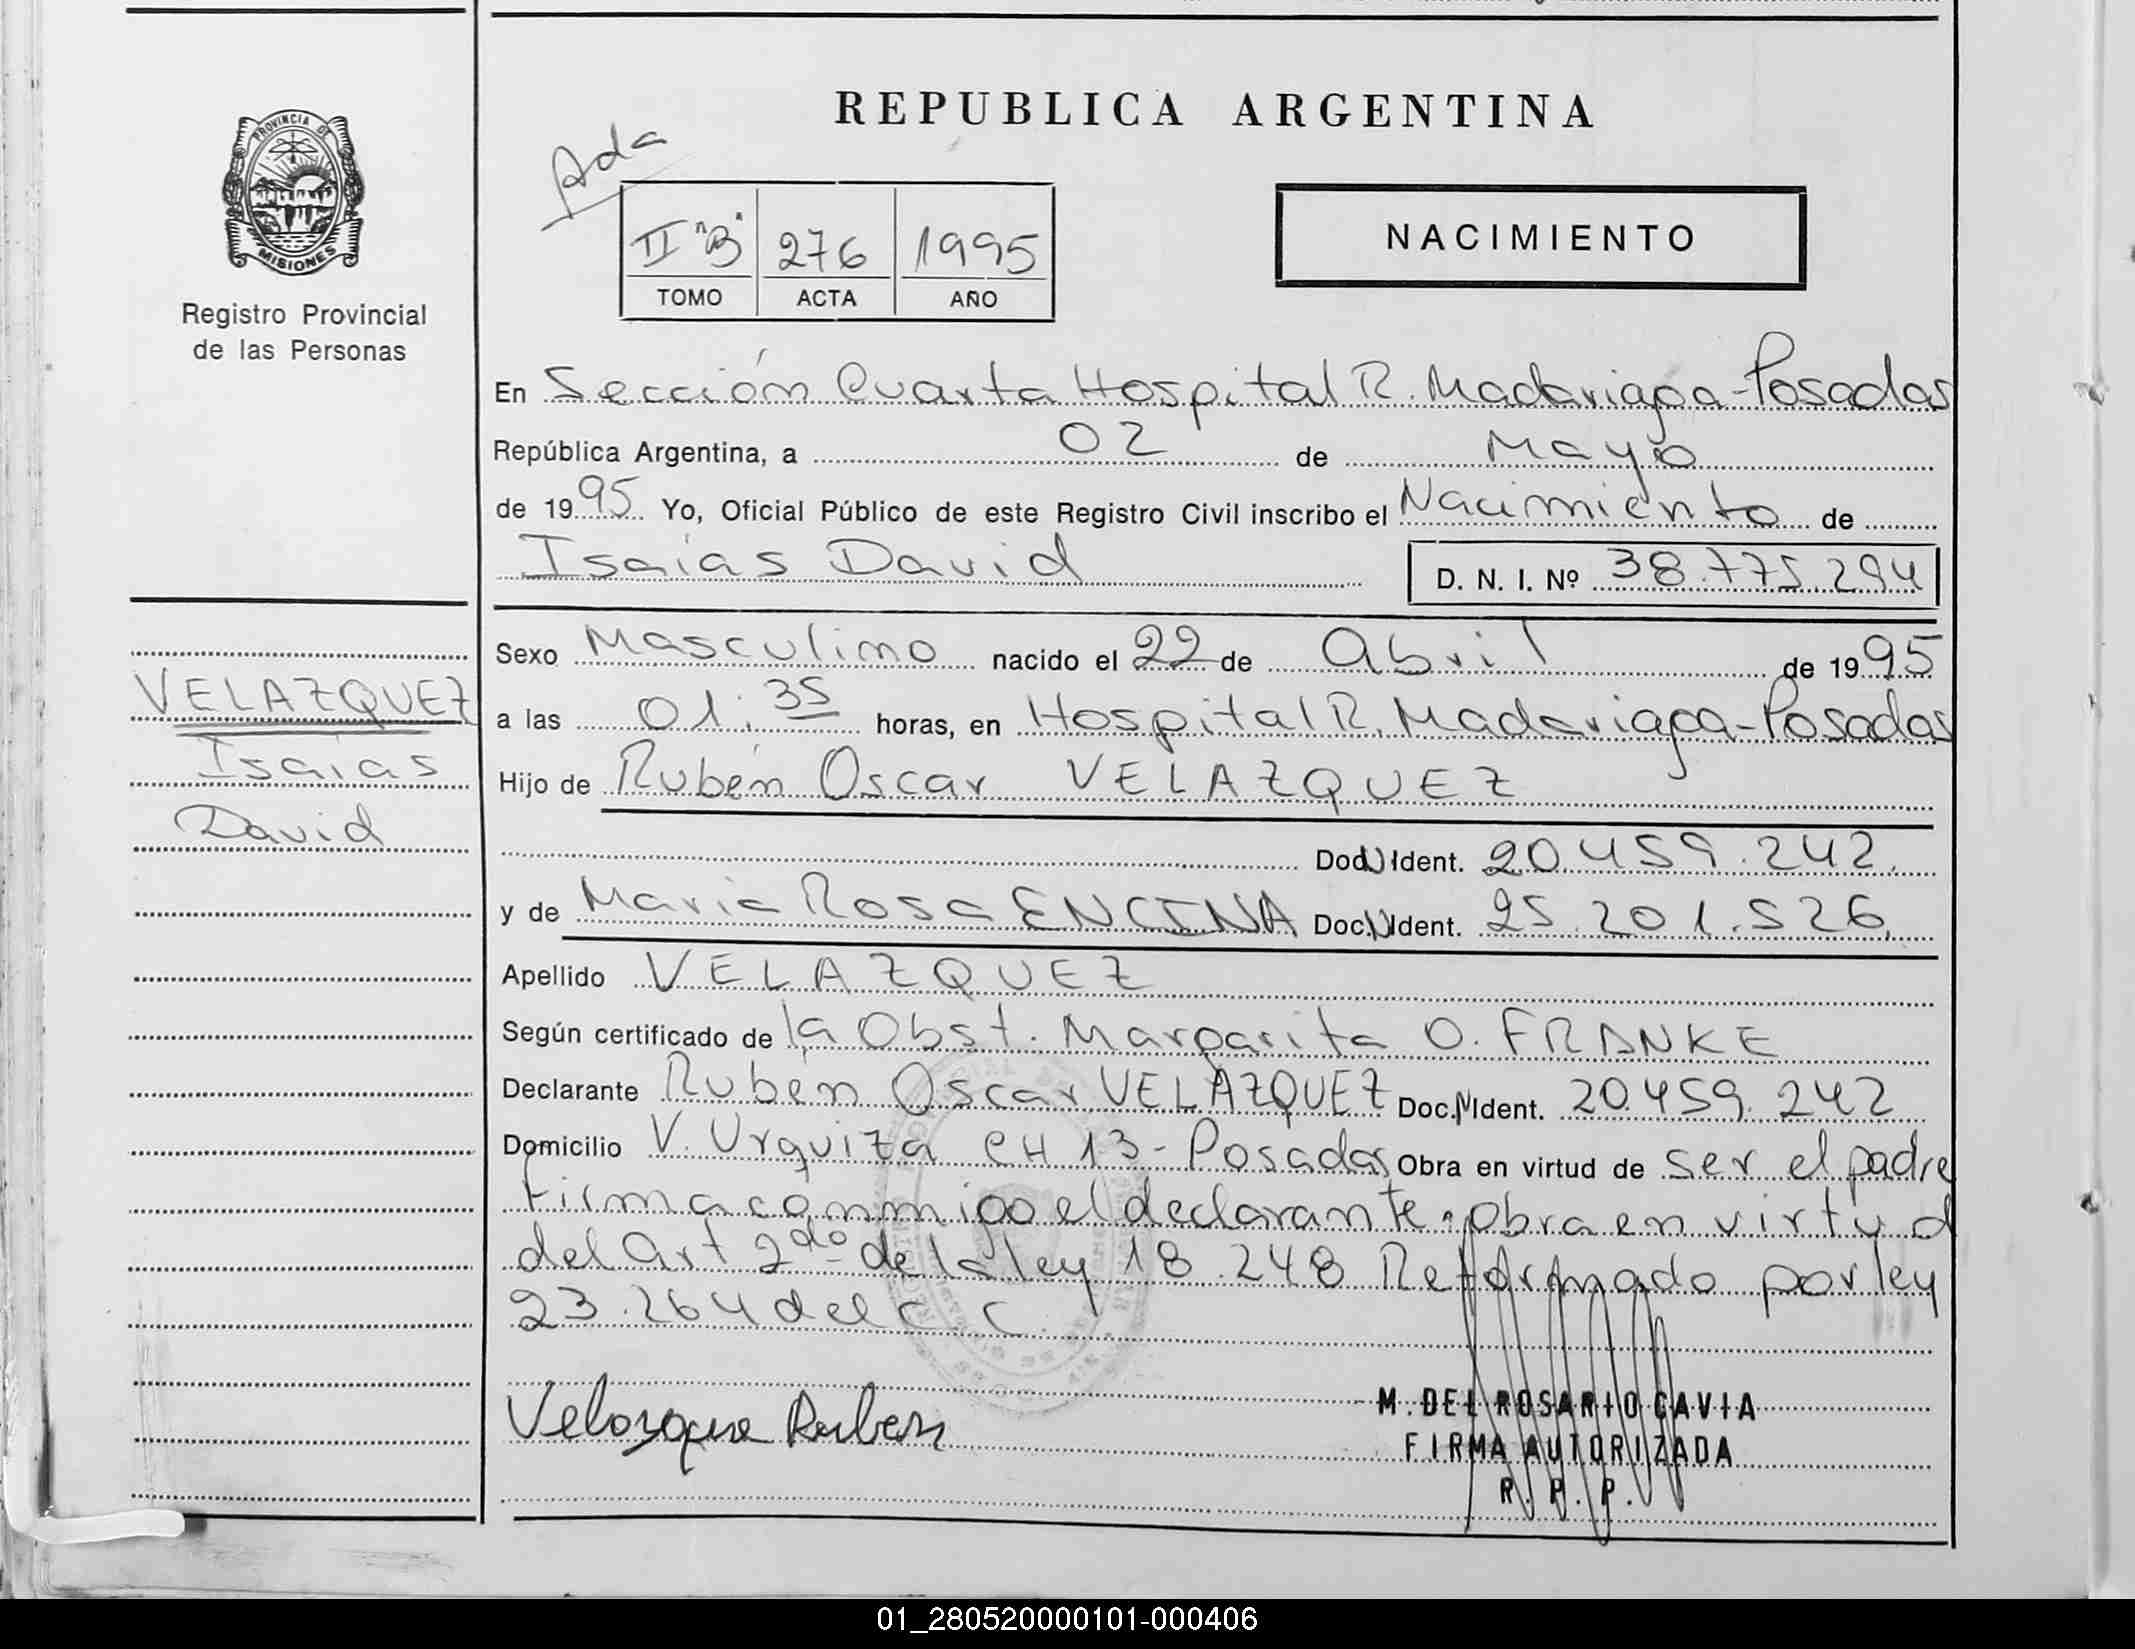 REPUBLICA ARGENTINA
PROVINCIA DE
MISIONES
Registro Provincial
de las Personas
Ada
II "B" 276 1995
TOMO ACTA AÑO
NACIMIENTO
En Sección Cuarta Hospital R. Madariaga-Posadas
República Argentina, a 02 de Mayo
de 1995 Yo, Oficial Público de este Registro Civil inscribo el Nacimiento de
Isaías David D. N. I. Nº 38.775.294
VELAZQUEZ
Isaías
David
Sexo Masculino nacido el 22 de Abril de 1995
a las 01:35 horas, en Hospital R. Madariaga-Posadas
Hijo de Rubén Oscar VELAZQUEZ
Doc.N.Ident. 20.459.242.
y de Maria Rosa ENCINA Doc.N.Ident. 25.201.526.
Apellido VELAZQUEZ
Según certificado de la Obst. Margarita O. FRANKE
Declarante Rubén Oscar VELAZQUEZ Doc.N.Ident. 20.459.242
Domicilio V. Urquiza CH 13- Posadas Obra en virtud de ser el padre
Firma conmigo el declarante. obra en virtud
del Art 2do de la ley 18.248 Reformado por ley
23.264 del C C.
Velazque Ruben
M. DEL ROSARIO CAVIA
FIRMA AUTORIZADA
R. P. P.
01_280520000101-000406